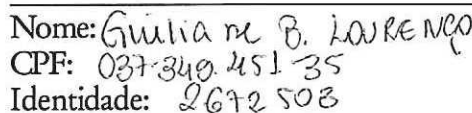 Nome: Giuliane B. LOURENÇO
CPF: 037.349.451-35
Identidade: 2672503